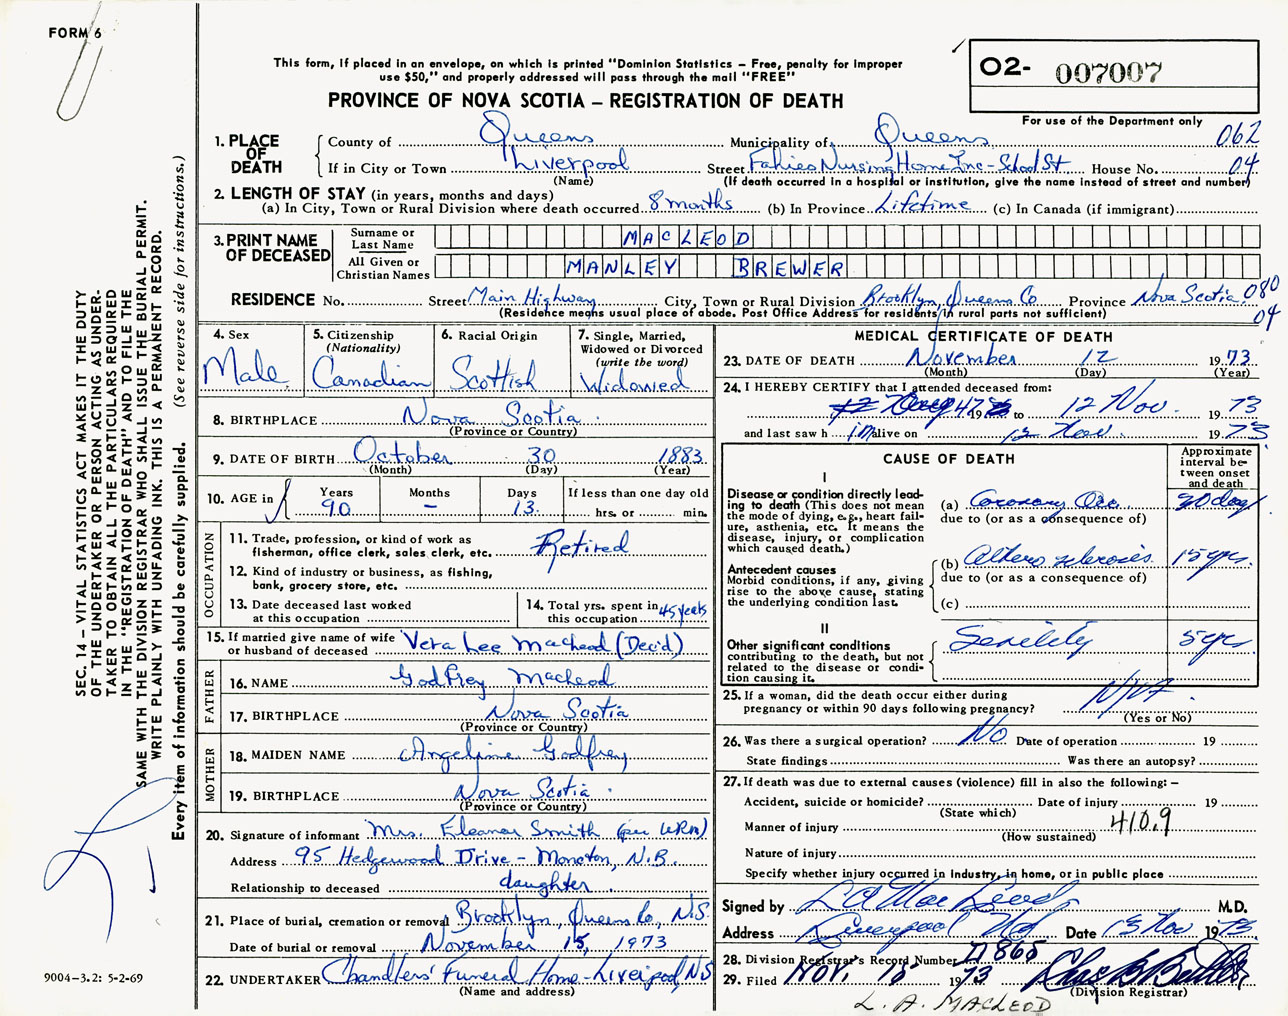 FORM 6
This form, if placed in an envelope, on which is printed "Dominion Statistics – Free, penalty for improper
use $50," and properly addressed will pass through the mail "FREE"
PROVINCE OF NOVA SCOTIA – REGISTRATION OF DEATH
O2- 007007
For use of the Department only
062
04
SEC. 14 – VITAL STATISTICS ACT MAKES IT THE DUTY
OF THE UNDERTAKER OR PERSON ACTING AS UNDER-
TAKER TO OBTAIN ALL THE PARTICULARS REQUIRED
IN THE "REGISTRATION OF DEATH" AND TO FILE THE
SAME WITH THE DIVISION REGISTRAR WHO SHALL ISSUE THE BURIAL PERMIT.
WRITE PLAINLY WITH UNFADING INK. THIS IS A PERMANENT RECORD.
Every item of information should be carefully supplied. (See reverse side for instructions.)
1. PLACE OF DEATH
County of Queens Municipality of Queens
If in City or Town Liverpool Street Fahies Nursing Home Inc - School St. House No.
(Name) (If death occurred in a hospital or institution, give the name instead of street and number)
2. LENGTH OF STAY (in years, months and days)
(a) In City, Town or Rural Division where death occurred 8 months (b) In Province Lifetime (c) In Canada (if immigrant)
3. PRINT NAME OF DECEASED
Surname or Last Name MACLEOD
All Given or Christian Names MANLEY BREWER
RESIDENCE No. Street Main Highway City, Town or Rural Division Brooklyn, Queens Co Province Nova Scotia 080
04
(Residence means usual place of abode. Post Office Address for residents in rural parts not sufficient)
4. Sex
Male
5. Citizenship
(Nationality)
Canadian
6. Racial Origin
Scottish
7. Single, Married,
Widowed or Divorced
(write the word)
Widowed
8. BIRTHPLACE Nova Scotia
(Province or Country)
9. DATE OF BIRTH October 30 1883
(Month) (Day) (Year)
10. AGE in
Years Months Days If less than one day old
90 – 13 hrs. or min.
OCCUPATION
11. Trade, profession, or kind of work as
fisherman, office clerk, sales clerk, etc. Retired
12. Kind of industry or business, as fishing,
bank, grocery store, etc.
13. Date deceased last worked
at this occupation
14. Total yrs. spent in
this occupation 45 years
15. If married give name of wife
or husband of deceased Vera Lee Macleod (Dec'd)
FATHER
16. NAME Godfrey Macleod
17. BIRTHPLACE Nova Scotia
(Province or Country)
MOTHER
18. MAIDEN NAME Angeline Godfrey
19. BIRTHPLACE Nova Scotia
(Province or Country)
20. Signature of informant Mrs. Eleanor Smith (per WRM)
Address 95 Hedgewood Drive - Moncton, N.B.
Relationship to deceased daughter
21. Place of burial, cremation or removal Brooklyn, Queens Co, N.S.
Date of burial or removal November 15, 1973
22. UNDERTAKER Chandlers' Funeral Home - Liverpool, NS
(Name and address)
MEDICAL CERTIFICATE OF DEATH
23. DATE OF DEATH November 12 1973
(Month) (Day) (Year)
24. I HEREBY CERTIFY that I attended deceased from:
19 to 12 Nov. 1973
and last saw him alive on 12 Nov. 1973
CAUSE OF DEATH
Approximate
interval be-
tween onset
and death
I
Disease or condition directly lead-
ing to death (This does not mean
the mode of dying, e.g., heart fail-
ure, asthenia, etc. It means the
disease, injury, or complication
which caused death.)
(a) Coronary Occ. 90 days
due to (or as a consequence of)
Antecedent causes
Morbid conditions, if any, giving
rise to the above cause, stating
the underlying condition last.
(b) Athero sclerosis 15 yrs.
due to (or as a consequence of)
(c)
II
Other significant conditions
contributing to the death, but not
related to the disease or condi-
tion causing it.
Senility 5 yrs
25. If a woman, did the death occur either during
pregnancy or within 90 days following pregnancy? N/A
(Yes or No)
26. Was there a surgical operation? No Date of operation 19
State findings Was there an autopsy?
27. If death was due to external causes (violence) fill in also the following: –
Accident, suicide or homicide? Date of injury 19
(State which)
Manner of injury 410.9
(How sustained)
Nature of injury
Specify whether injury occurred in industry, in home, or in public place
Signed by L A MacLeod M.D.
Address Liverpool NS Date 13 Nov 1973
28. Division Registrar's Record Number 865
29. Filed Nov. 15 1973
(Division Registrar)
L. A. MACLEOD
9004–3.2: 5-2-69